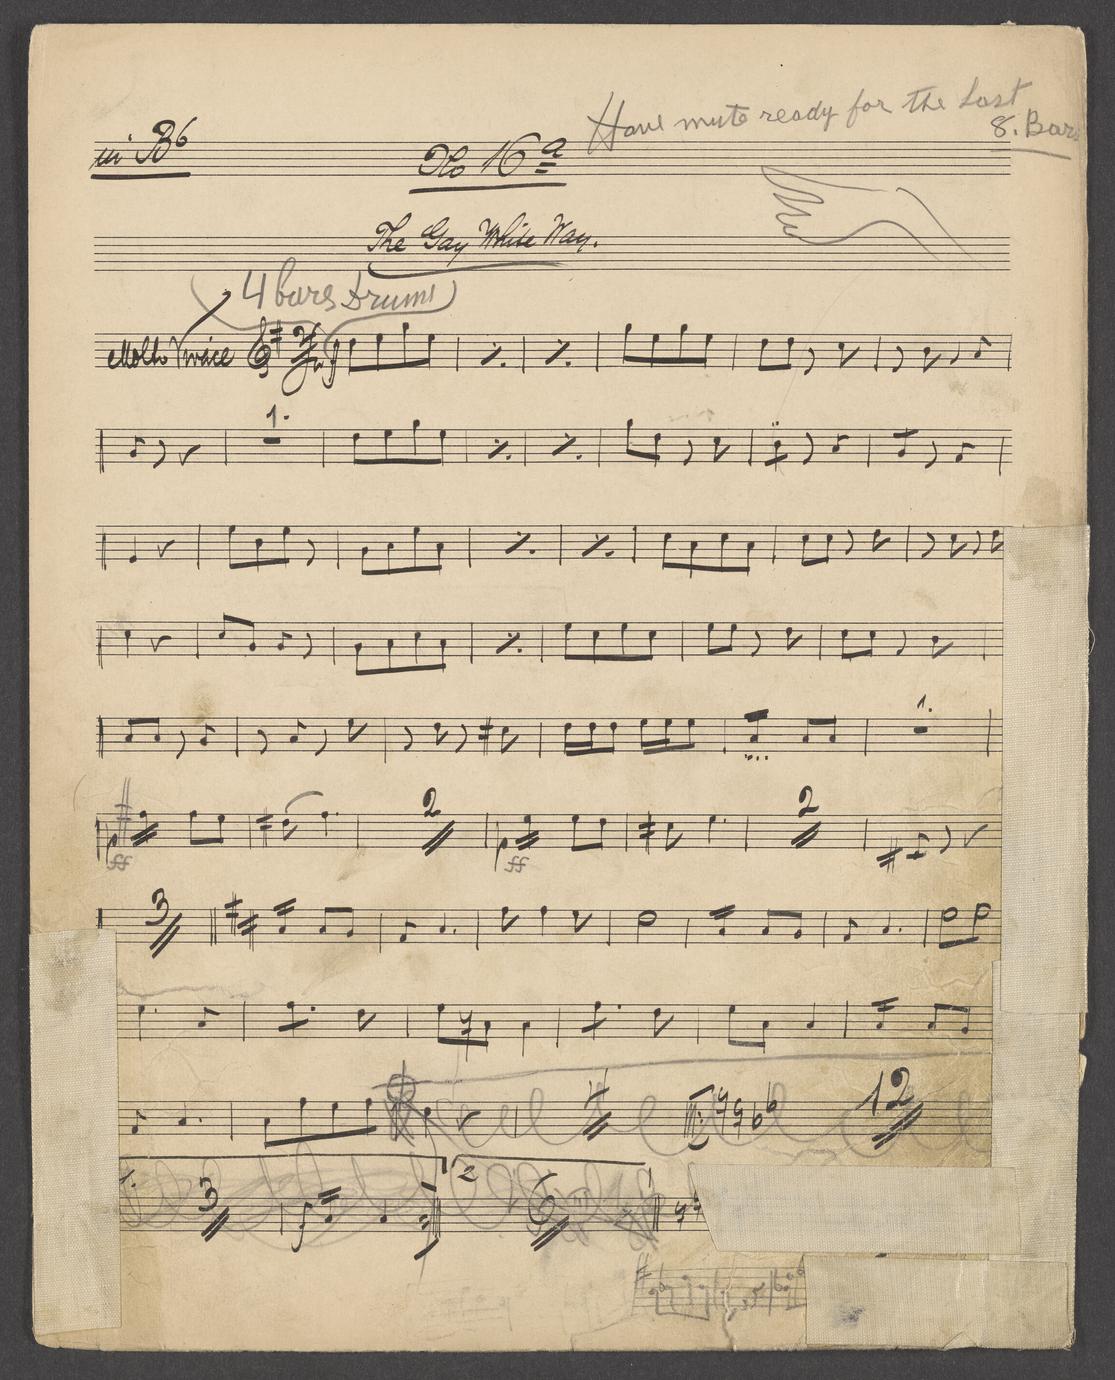 Have mute ready for the Last
8. Bars
in Bb
No 16 a
The Gay White Way.
(4 bars Drums)
Molto Vivace
1.
1.
2
2
ff
ff
3
12
3
2
6
f